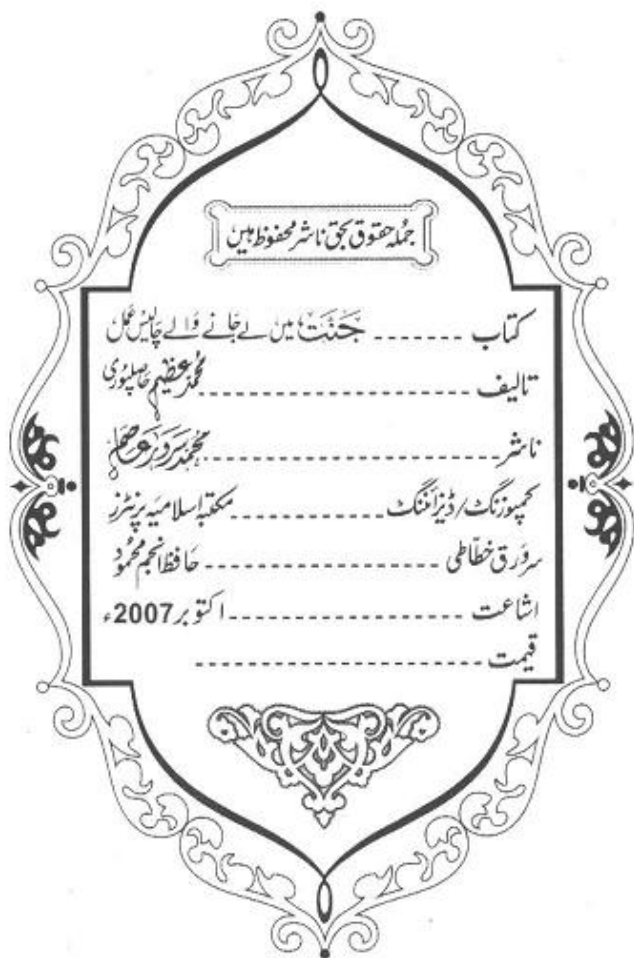 جملہ حقوق بحق ناشر محفوظ ہیں
کتاب ------- جنت میں لے جانے والے چالیس عمل
تالیف ------- محمد عظیم حاصلپوری
ناشر ------- محمد سرور عاصم
کمپوزنگ/ڈیزائننگ ------- مکتبہ اسلامیہ پرنٹرز
سرورق خطاطی ------- حافظ انجم محمود
اشاعت ------- اکتوبر 2007ء
قیمت -------